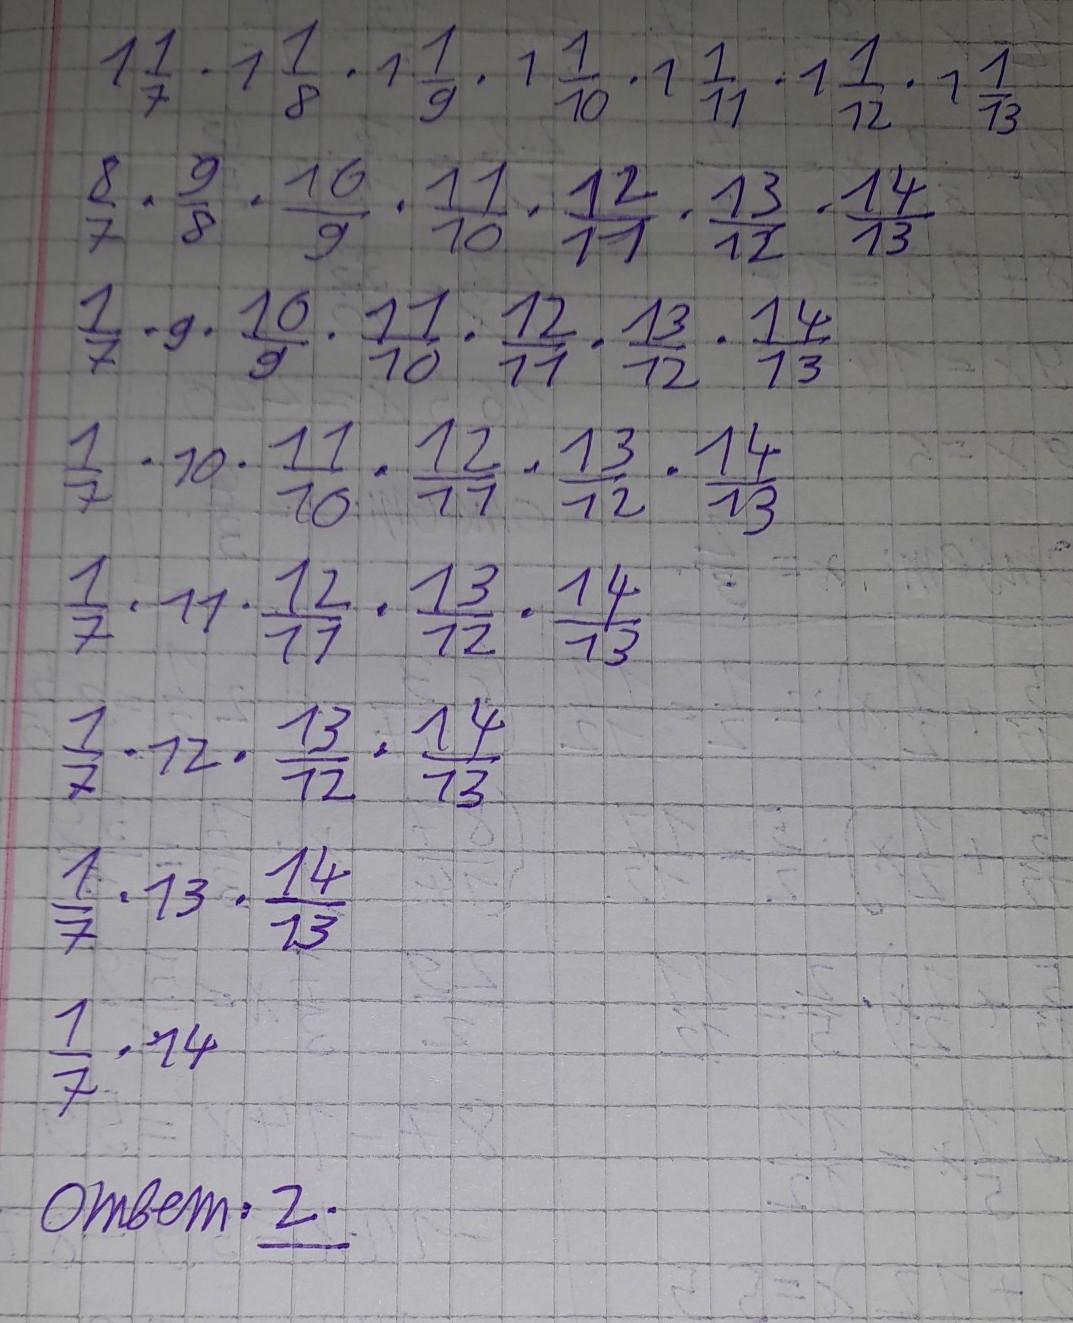 1 1/7 · 1 1/8 · 1 1/9 · 1 1/10 · 1 1/11 · 1 1/12 · 1 1/13
8/7 · 9/8 · 10/9 · 11/10 · 12/11 · 13/12 · 14/13
1/7 · 9 · 10/9 · 11/10 · 12/11 · 13/12 · 14/13
1/7 · 10 · 11/10 · 12/11 · 13/12 · 14/13
1/7 · 11 · 12/11 · 13/12 · 14/13
1/7 · 12 · 13/12 · 14/13
1/7 · 13 · 14/13
1/7 · 14
Ответ: 2.